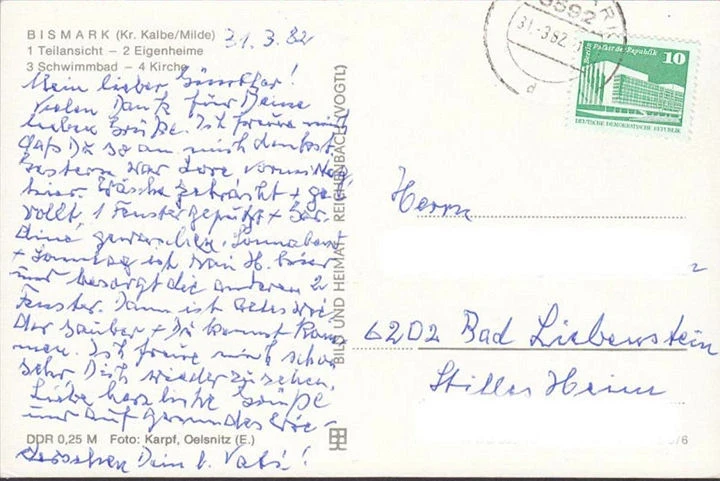 BISMARK (Kr. Kalbe/Milde) 31.3.82
1 Teilansicht – 2 Eigenheime
3 Schwimmbad – 4 Kirche
Mein lieber Günther!
Vielen Dank für Deine
lieben Grüße. Ich freue mich
daß Du so an mich denkst.
Gestern war Lore vormittag
hier. Wäsche gebracht + ge
rollt, 1 Fenster geputzt + Gar-
dine gewaschen. Sonnabend
+ Sonntag ist H. hier
und besorgt die anderen 2
Fenster. Dann ist alles wie
der sauber + Du kannst kom
men. Ich freue mich schon
sehr Dich wiederzusehen.
Liebe herzliche Grüße
und auf gesundes Wie-
DDR 0,25 M Foto: Karpf, Oelsnitz (E.)
dersehen Dein l. Vati!
BILD UND HEIMAT REICHENBACH (VOGTL)
31.-3.82
d
Berlin Palast der Republik 10
DEUTSCHE DEMOKRATISCHE REPUBLIK
Herrn
2
6202 Bad Liebenstein
Stilles Heim